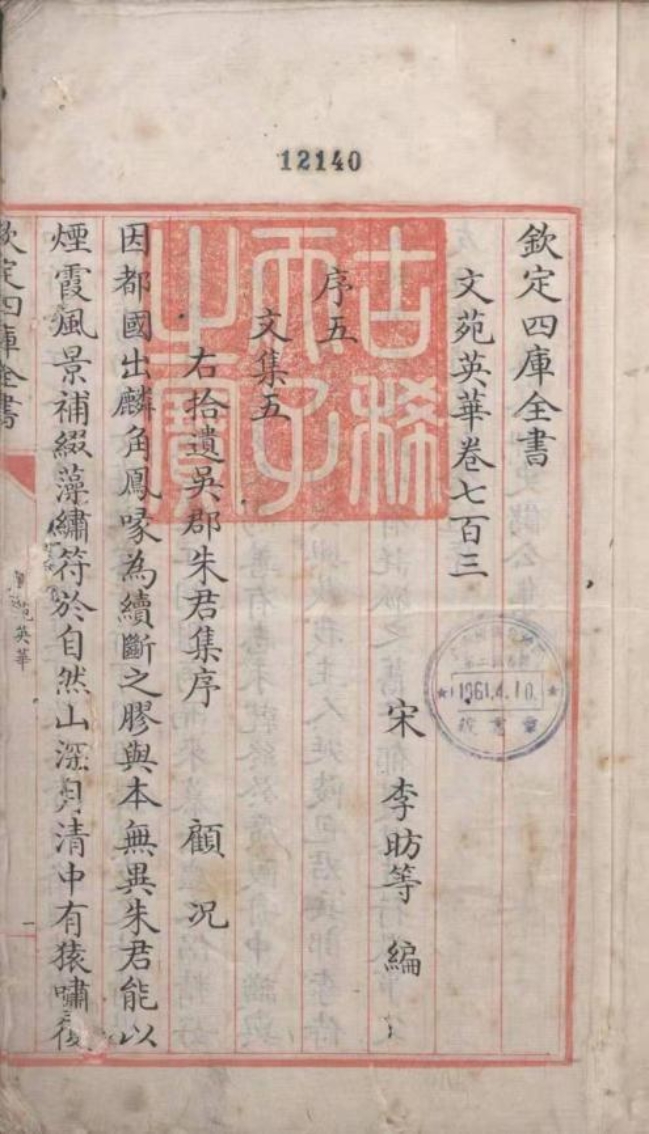 12140
欽定四庫全書
文苑英華卷七百三
宋 李昉等 編
序五
文集五
右拾遺吳郡朱君集序 顧況
因都國出麟角鳳喙為續斷之膠與本無異朱君能以
煙霞風景補綴藻繡符於自然山深月清中有猿嘯復
欽定四庫全書
英華
古稀天子之寶
1961.4.10.